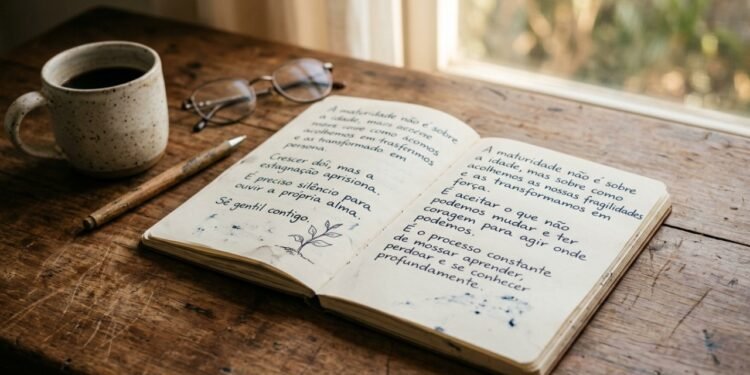 A maturidade não é sobre
a idade, mais
como acomos
acolhemos em trasfermos
e as transformado em
persona.
Crescer dói, mas a
estagnação aprisiona.
É preciso silêncio para
ouvir a própria alma.
Sê gentil contigo.
A maturidade não é sobre
a idade, mas sobre como
acolhemos as nossas fragilidades
e as transformamos em
força.
É aceitar o que não
podemos mudar e ter
coragem para agir onde
podemos.
É o processo constante
de mossar aprender,
perdoar e se conhecer
profundamente.